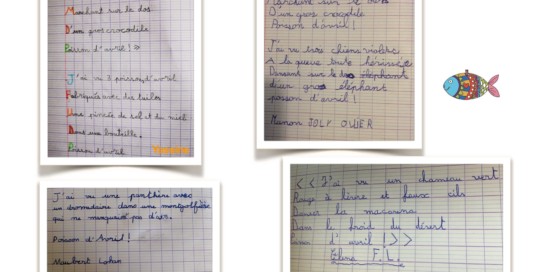 Marchant sur le dos
D'un gros crocodile
Poisson d'avril !
J'ai vu 3 poisson d'avril
Fabriqués avec des tuiles
Une pincée de sel et du miel
Dans une bouteille.
Poisson d'avril
D'un gros crocodile
Poisson d'avril !
J'ai vu trois chiens violets
A la queue toute hérissée
Dansent sur le éléphants
d'un gros éléphant
poisson d'avril !
Manon JOLY OLIVIER
J'ai vu une panthère avec
un dromadaire dans une montgolfière
qui ne manquait pas d'air.
Poisson d'Avril !
Maubert Lohan
<< J'ai vu un chameau vert
Rouge à lèvre et faux cils
Danser la macarena
Dans le froid du désert
d'avril ! >>
Eléna F.L.